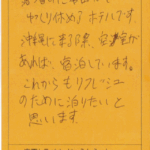 ゆっくり休める ホテルです。
沖縄に来る際、空室が
あれば、宿泊しています。
これからもリフレッシュ
のために泊りたいと
思います。